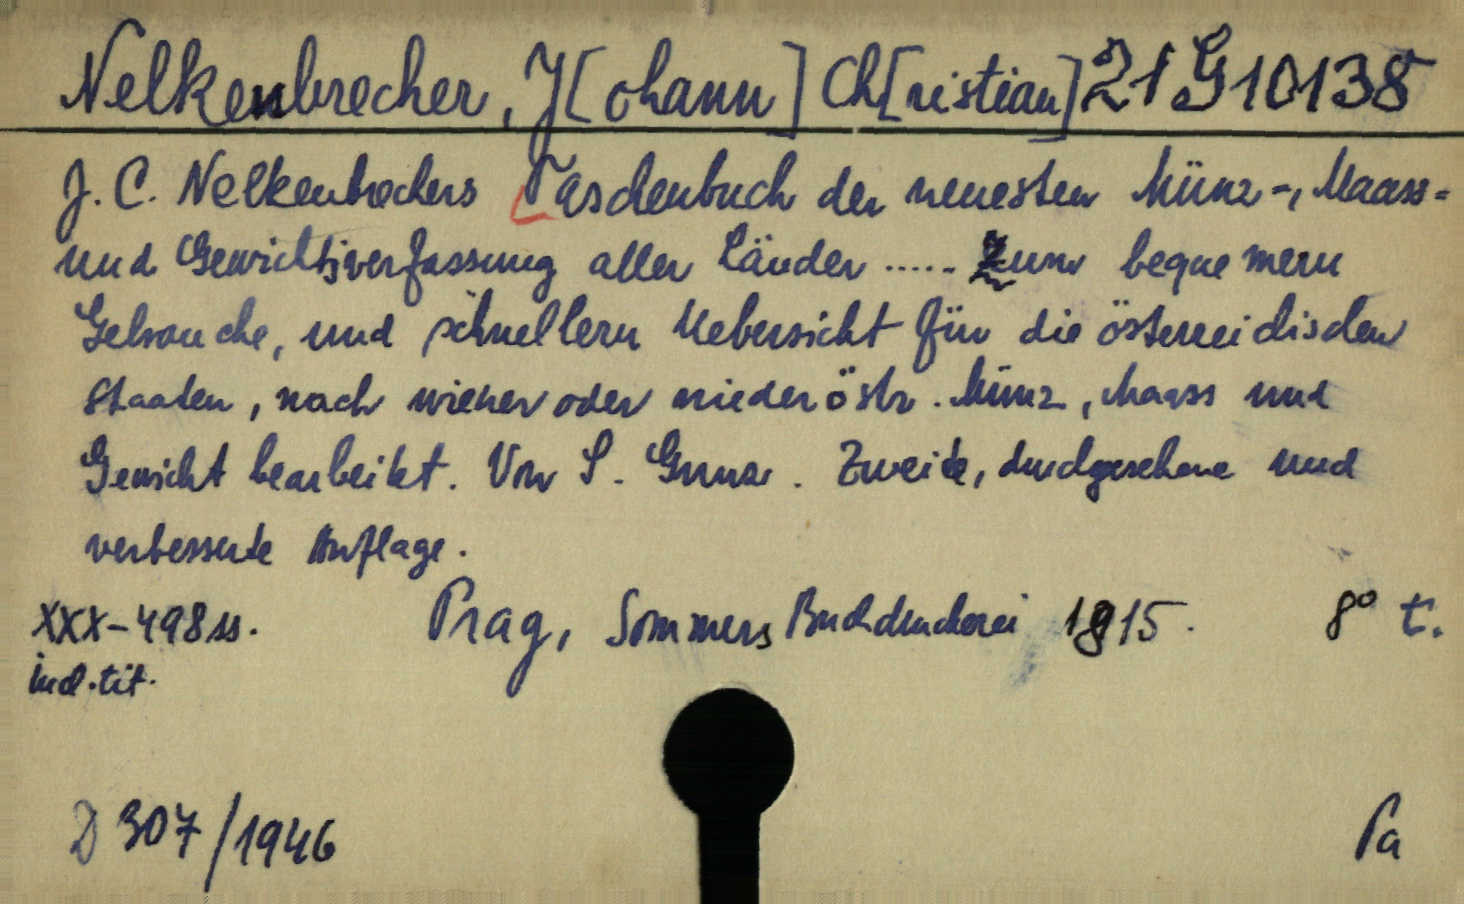 Nelkenbrecher, J[ohann] Ch[ristian] 21 G 10138
J. C. Nelkenbrechers Taschenbuch der neuesten Münz-, Maass-
und Gewichtsverfassung aller Länder ..... Zum bequemern
Gebrauche, und schnellern Uebersicht für die österreichischen
Staaten, nach wiener oder niederöstr. Münz, Maass und
Gewicht bearbeitet. Von S. Gunz. Zweite, durchgesehene und
verbesserte Auflage.
XXX-498 ss. Prag, Sommers Buchdruckerei 1815. 8° t.
ind. tit.
D 307/1946 Pa